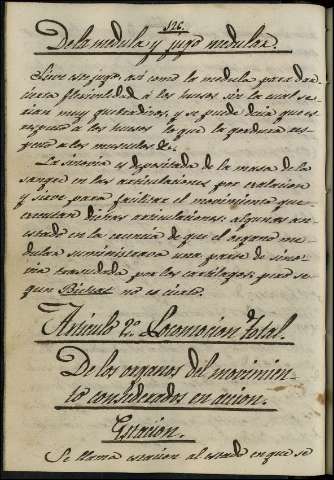 526.
De la medula y jugo medular.
Sirve este jugo, asi como la medula para dar
cierta flexividad á los huesos sin la cual se-
rian muy quebradizos, y se puede decir que es
respecto á los huesos lo que la gordura res-
pecto á los musculos &.
La sinovia es depositada de la masa de la
sangre en las articulaciones por exalacion
y sirve para facilitar el movimiento que
executan dichas articulaciones: algunos an
estado en la creencia de que el organo me-
dular suministrava una parte de sino-
via trasudada por los cartilagos; pero se-
gun Bichat no es cierto.
Articulo 2º Locomocion total.
De los organos del movimien-
to considerados en accion.
Estacion.
Se llama estacion al estado en que se